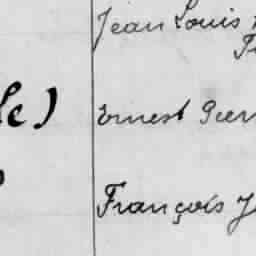 Jean Louis
le)
Ernest Pierr
François J